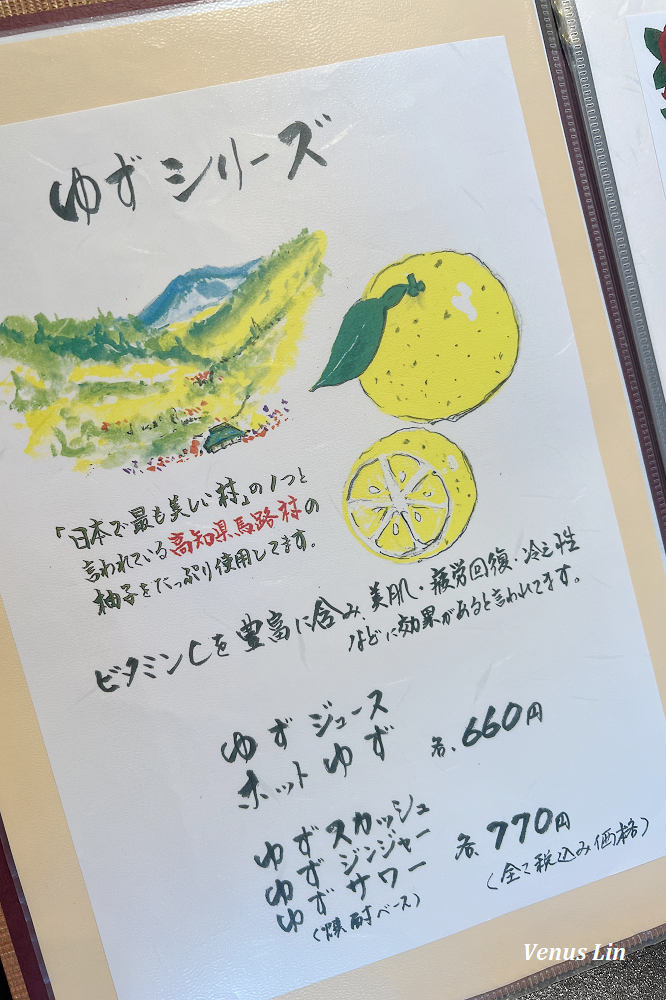 ゆずシリーズ
「日本で最も美しい村」の1つと
言われている高知県馬路村の
柚子をたっぷり使用してます。
ビタミンCを豊富に含み、美肌・疲労回復・冷え性
などに効果があると言われてます。
ゆずジュース
ホットゆず 各、660円
ゆずスカッシュ
ゆずジンジャー 各、770円
ゆずサワー (全て税込み価格)
(焼酎ベース)
Venus Lin